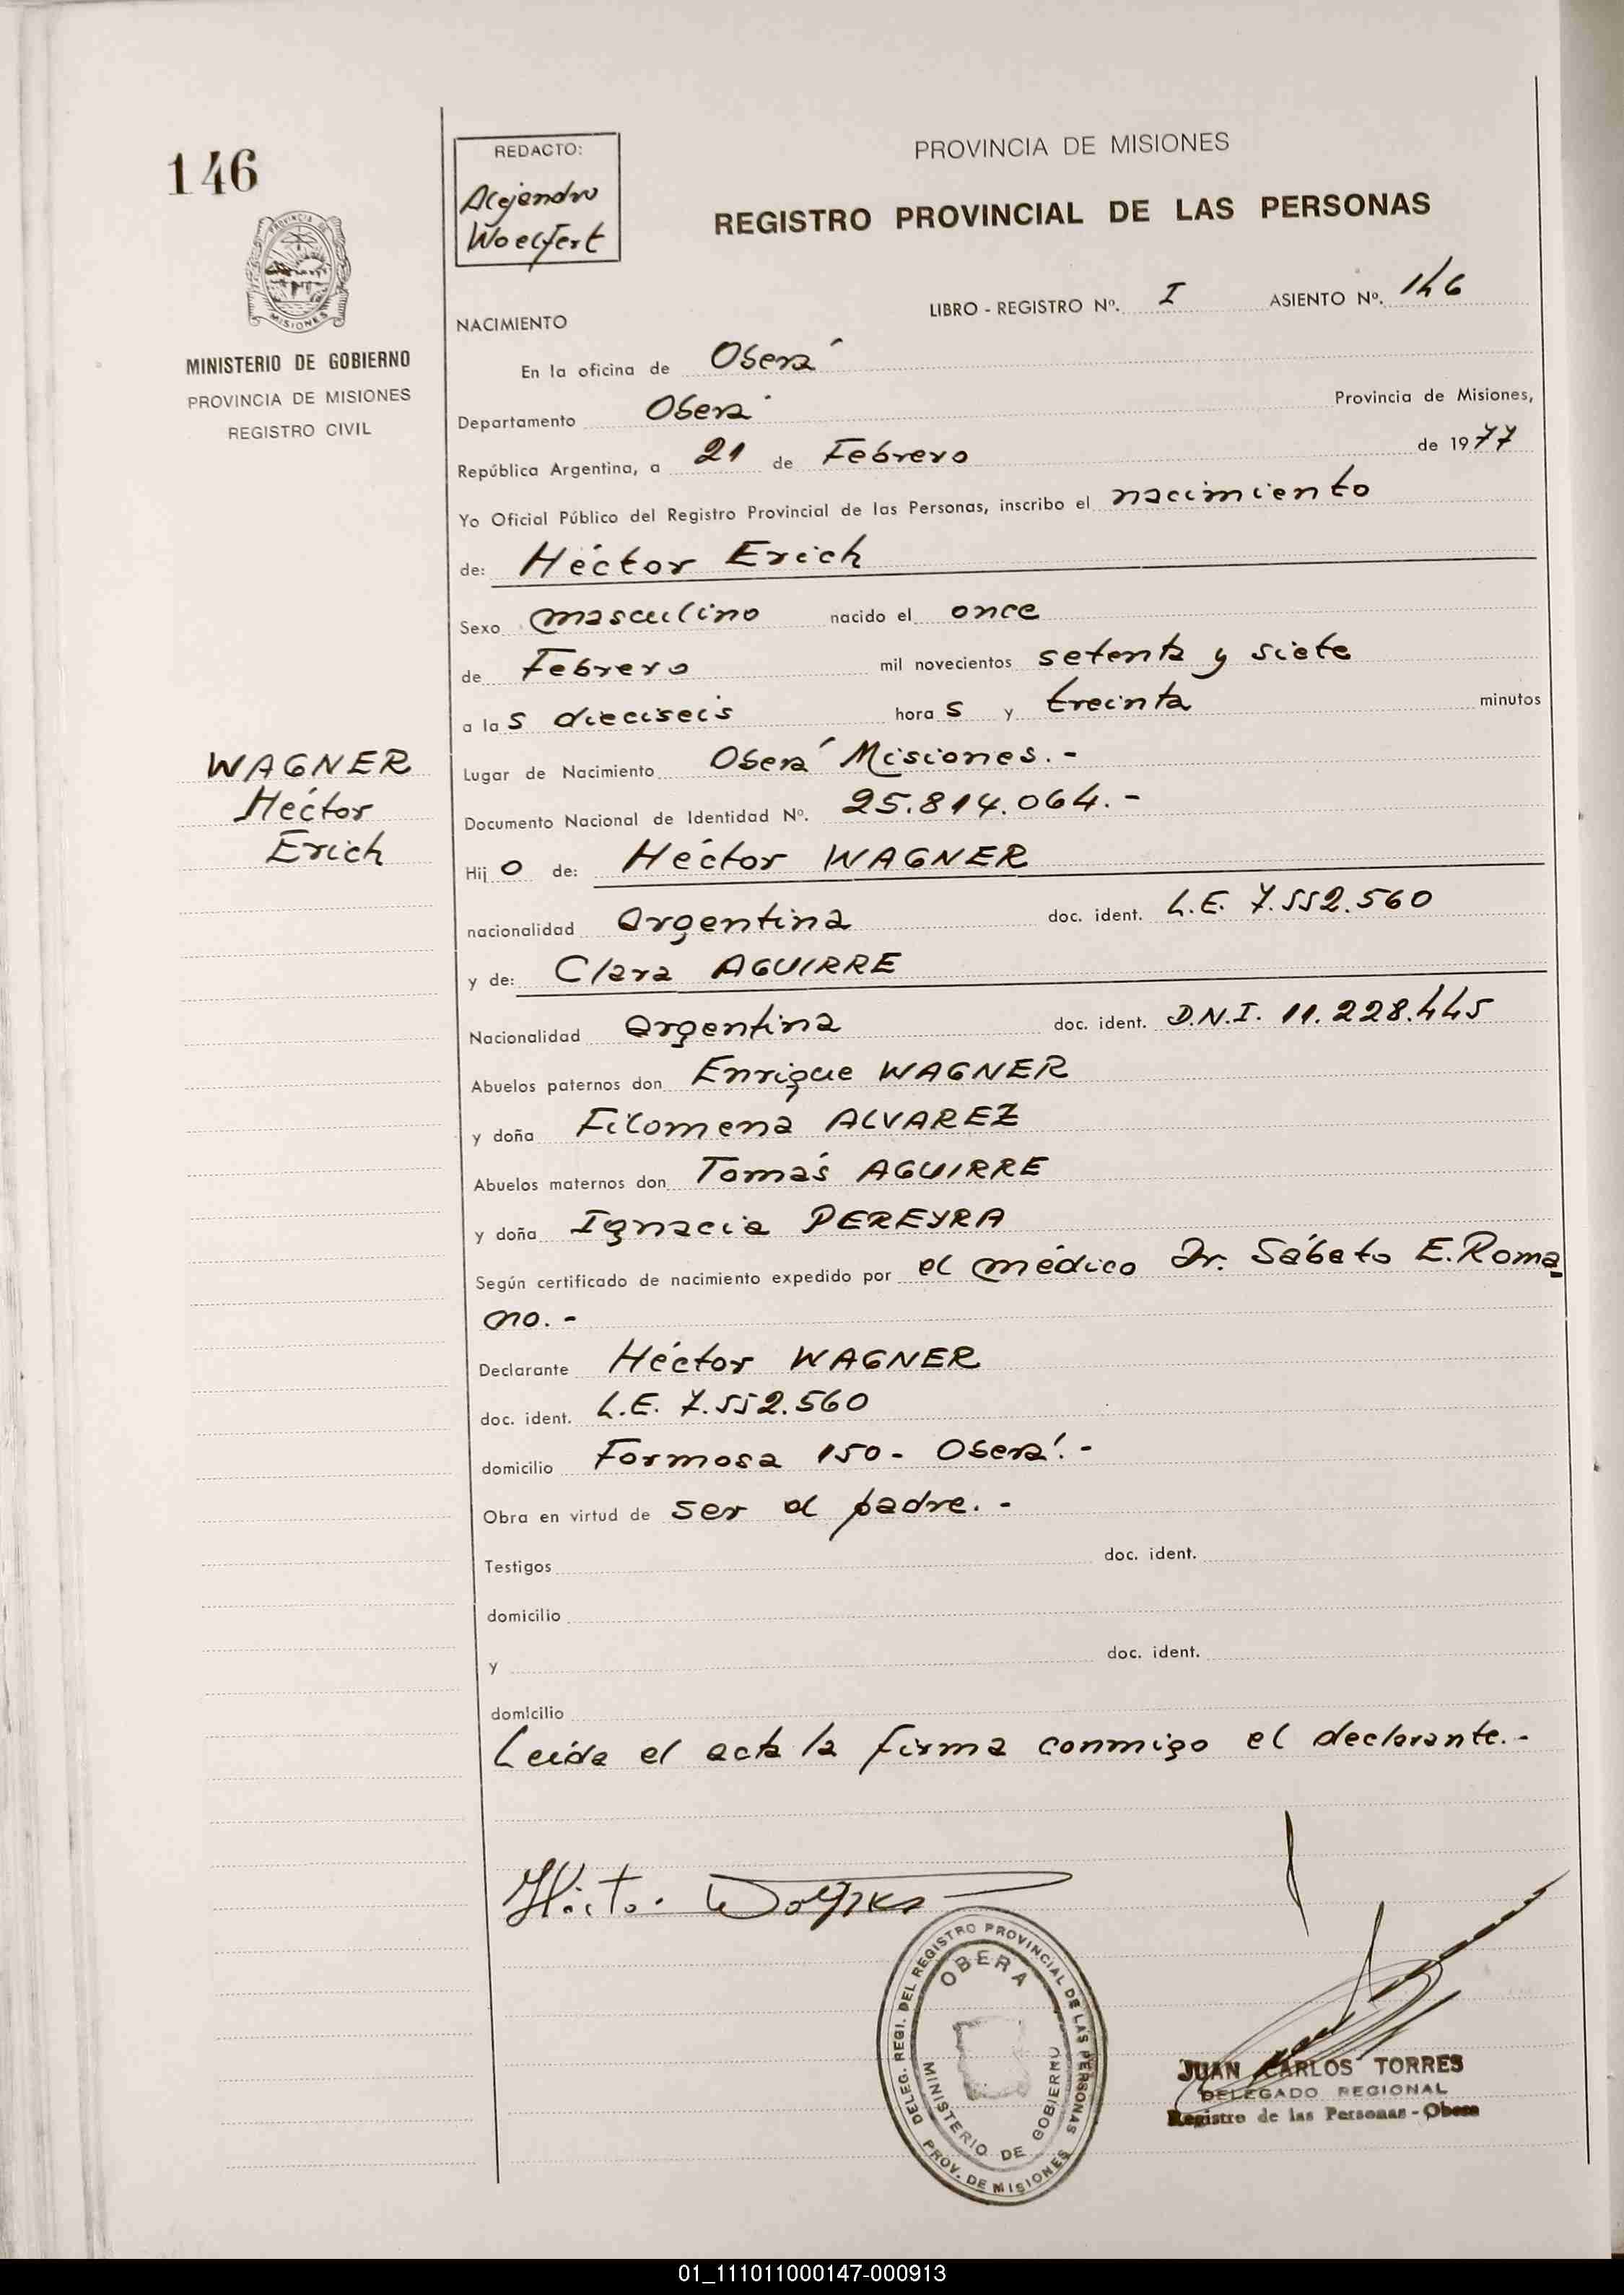 146
PROVINCIA
MISIONES
MINISTERIO DE GOBIERNO
PROVINCIA DE MISIONES
REGISTRO CIVIL
REDACTO:
Alejandro
Woelfert
PROVINCIA DE MISIONES
REGISTRO PROVINCIAL DE LAS PERSONAS
LIBRO - REGISTRO Nº. I ASIENTO Nº. 146
NACIMIENTO
En la oficina de Oberá
Departamento Oberá Provincia de Misiones,
República Argentina, a 21 de Febrero de 1977
Yo Oficial Público del Registro Provincial de las Personas, inscribo el nacimiento
de: Héctor Erich
Sexo masculino nacido el once
de Febrero mil novecientos setenta y siete
a las dieciseis horas y treinta minutos
Lugar de Nacimiento Oberá Misiones.-
Documento Nacional de Identidad Nº. 25.814.064.-
Hijo de: Héctor WAGNER
nacionalidad Argentina doc. ident. L.E. 7.552.560
y de: Clara AGUIRRE
Nacionalidad Argentina doc. ident. D.N.I. 11.228.445
Abuelos paternos don Enrique WAGNER
y doña Filomena ALVAREZ
Abuelos maternos don Tomás AGUIRRE
y doña Ignacia PEREYRA
Según certificado de nacimiento expedido por el médico Dr. Sábato E. Roma
no.-
Declarante Héctor WAGNER
doc. ident. L.E. 7.552.560
domicilio Formosa 150- Oberá.-
Obra en virtud de ser el padre.-
Testigos doc. ident.
domicilio
y doc. ident.
domicilio
Leída el acta la firma conmigo el declarante.-
WAGNER
Héctor
Erich
DELEG. REGI. DEL REGISTRO PROVINCIAL DE LAS PERSONAS
OBERA
MINISTERIO DE GOBIERNO
PROV. DE MISIONES
JUAN CARLOS TORRES
DELEGADO REGIONAL
Registro de las Personas - Obera
01_111011000147-000913